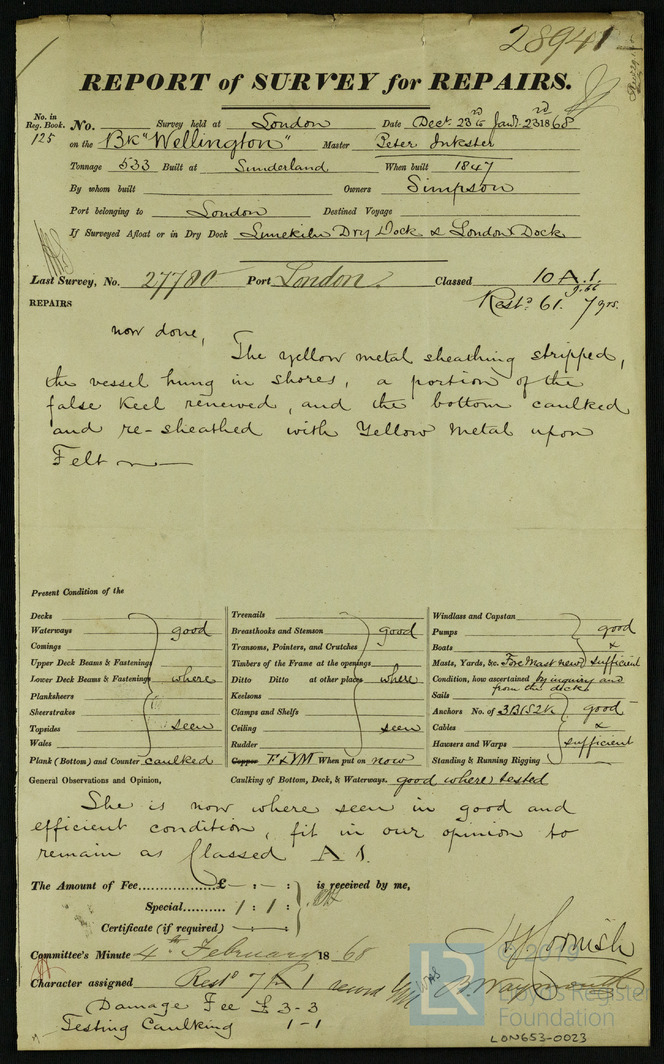 28941
REPORT of SURVEY for REPAIRS.
No. in Reg. Book. No. Survey held at London Date Dect. 23rd to Jany. 23rd 1868
125 on the Bk "Wellington" Master Peter Inkster
Tonnage 533 Built at Sunderland When built 1847
By whom built Owners Simpson
Port belonging to London Destined Voyage
If Surveyed Afloat or in Dry Dock Limekiln Dry Dock & London Dock
Last Survey, No. 27780 Port London. Classed 10 A.1
9.66
REPAIRS Restd. 61. 7 yrs.
now done,
The yellow metal sheathing stripped,
the vessel hung in shores, a portion of the
false Keel renewed, and the bottom caulked
and re-sheathed with Yellow Metal upon
Felt
Present Condition of the
Decks
Waterways good
Comings
Upper Deck Beams & Fastenings
Lower Deck Beams & Fastenings where
Planksheers
Sheerstrakes
Topsides seen
Wales
Plank (Bottom) and Counter caulked
Treenails
Breasthooks and Stemson good
Transoms, Pointers, and Crutches
Timbers of the Frame at the openings
Ditto Ditto at other places where
Keelsons
Clamps and Shelfs
Ceiling seen
Rudder
Copper F & YM When put on now
Windlass and Capstan
Pumps good
Boats &
Masts, Yards, &c. Fore Mast new sufficient
Condition, how ascertained by inquiry and
from the decks
Sails
Anchors No. of 3B 1S 2K good
Cables &
Hawsers and Warps sufficient
Standing & Running Rigging
General Observations and Opinion, Caulking of Bottom, Deck, & Waterways. good where tested
She is now where seen in good and
efficient condition, fit in our opinion to
remain as Classed A 1.
The Amount of Fee £ – : – : is received by me,
Special 1 : 1 :
Certificate (if required)
Committee's Minute 4th February 1868
Character assigned Restd 7 A 1
Damage Fee £ 3-3
Testing Caulking 1-1
J Cornish
B. Waymouth
LR © 2019
Lloyd's Register
Foundation
LON653-0023